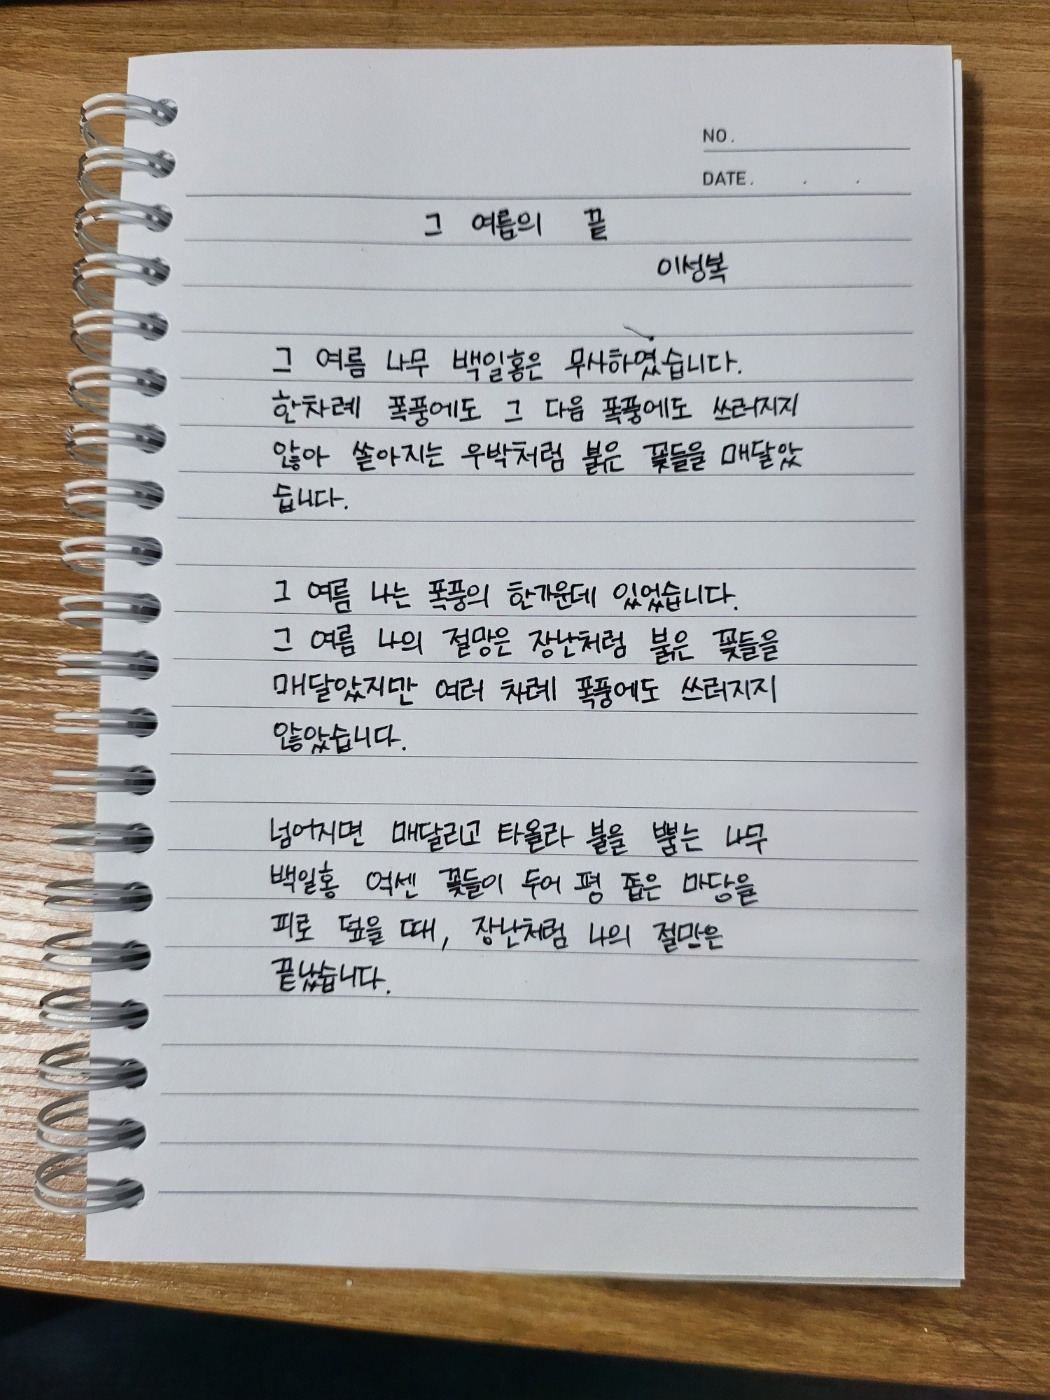 NO.
DATE. . .
그 여름의 끝
이성복
그 여름 나무 백일홍은 무사하였습니다.
한차례 폭풍에도 그 다음 폭풍에도 쓰러지지
않아 쏟아지는 우박처럼 붉은 꽃들을 매달았
습니다.
그 여름 나는 폭풍의 한가운데 있었습니다.
그 여름 나의 절망은 장난처럼 붉은 꽃들을
매달았지만 여러 차례 폭풍에도 쓰러지지
않았습니다.
넘어지면 매달리고 타올라 불을 뿜는 나무
백일홍 억센 꽃들이 두어 평 좁은 마당을
피로 덮을 때, 장난처럼 나의 절망은
끝났습니다.